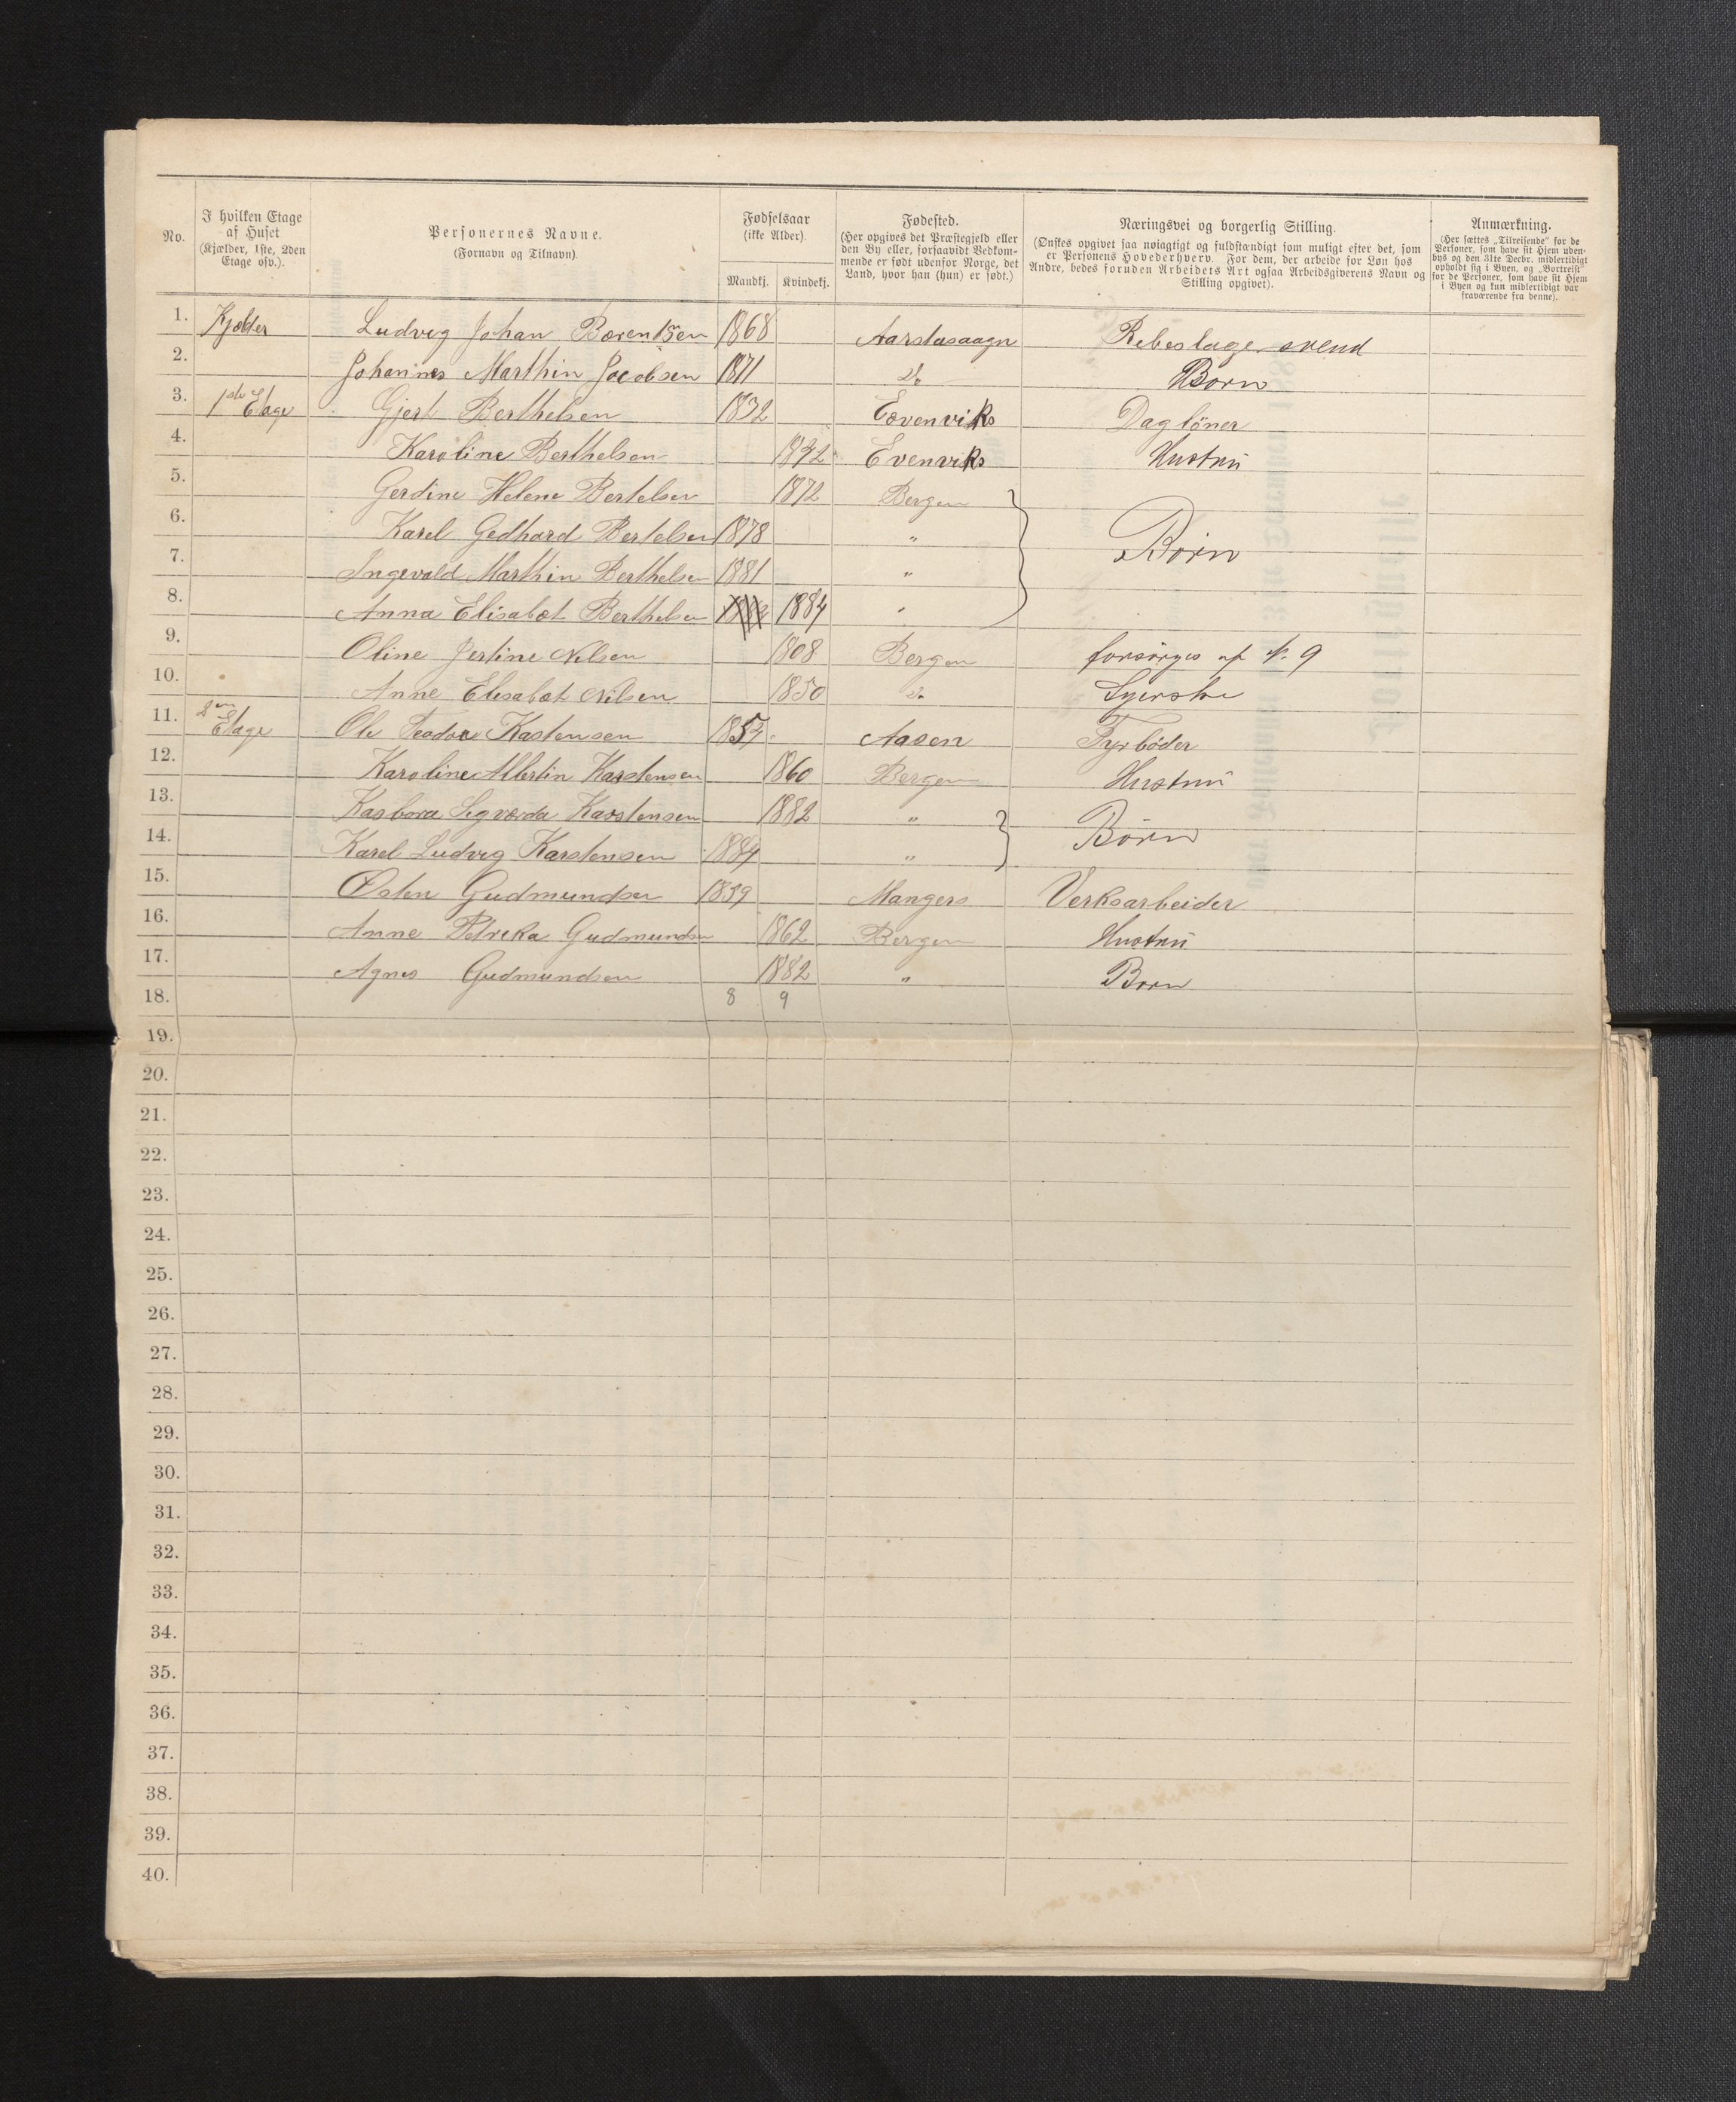 No.
I hvilken Etage af Huset (Kjælder, 1ste, 2den Etage osv.).
Personernes Navne. (Fornavn og Tilnavn).
Fødselsaar (ikke Alder).
Mandkj. Kvindekj.
Fødested. (Her opgives det Præstegjeld eller den By eller, forsaavidt Vedkommende er født udenfor Norge, det Land, hvor han (hun) er født.)
Næringsvei og borgerlig Stilling. (Ønskes opgivet saa nøiagtigt og fuldstændigt som muligt efter det, som er Personens Hovederhverv. For dem, der arbeide for Løn hos Andre, bedes foruden Arbeidets Art ogsaa Arbeidsgiverens Navn og Stilling opgivet).
Anmærkning. (Her sættes „Tilreisende“ for de Personer, som have sit Hjem udenbys og den 31te Decbr. midlertidigt opholdt sig i Byen, og „Bortreist“ for de Personer, som have sit Hjem i Byen og kun midlertidigt var fraværende fra denne).
1. Kjelder Ludvig Johan Børentsen 1868 Rebeslager svend
2. Johannes Marthin Jacobsen 1871 do Børn
3. 1ste Etage Gjert Berthelsen 1832 Eevenviks Dagløner
4. Karoline Berthelsen Evenviks Hustrü
5. Gerdine Helene Bertelsen 1872 Bergen
6. Karel Gedhard Bertelsen 1878 " Börn
7. Ingevald Marthin Berthelsen 1881 "
8. Anna Elisabet Berthelsen 1884 "
9. Oline Jertine Nilsen 1808 Bergen forsörges af N. 9
10. Anne Elisabet Nilsen 1850 do Syerske
11. 2en Etage Ole Teador Kastensen Aasen Fyrböder
12. Karoline Albertin Karstensen 1860 Bergen Hustrü
13. Kasbora Sigvarda Karstensen 1882 " Börn
14. Karel Ludvig Karstensen 1884 "
15. Østen Gudmundsen 1859 Mangers Verksarbeider
16. Anne Petreka Gudmundsen 1862 Bergen Hustrü
17. Agnes Gudmundsen 1882 " Born
18. 8 9
19.
20.
21.
22.
23.
24.
25.
26.
27.
28.
29.
30.
31.
32.
33.
34.
35.
36.
37.
38.
39.
40.